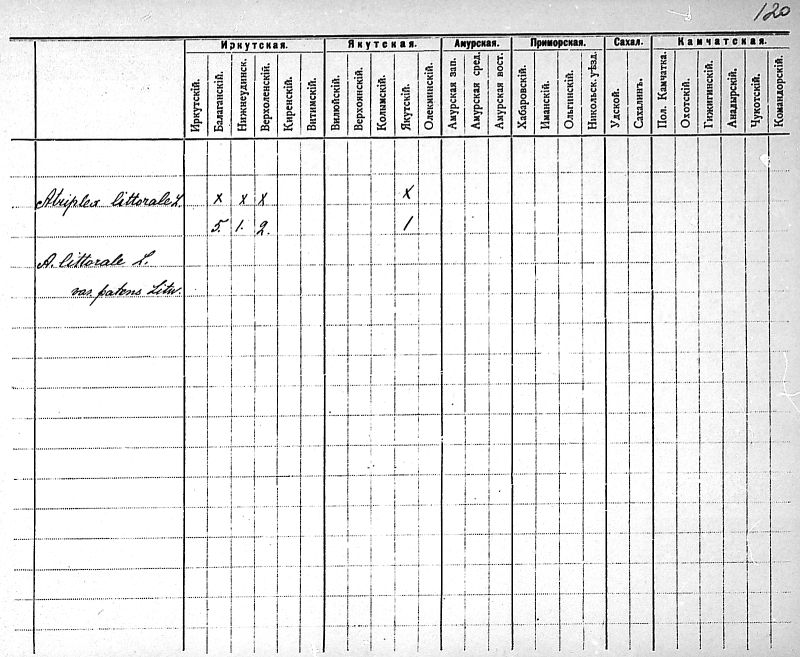 120
Иркутская. Якутская. Амурская. Приморская. Сахал. Камчатская.
Иркутскій. Балаганскій. Нижнеудинск. Верхоленскій. Киренскій. Витимскій. Вилюйскій. Верхоянскій. Колымскій. Якутскій. Олекминскій. Амурская зап. Амурская сред. Амурская вост. Хабаровскій. Иманскій. Ольгинскій. Никольск. уѣзд. Удской. Сахалинъ. Пол. Камчатка. Охотскій. Гижигинскій. Анадырскій. Чукотскій. Командорскій.
Atriplex littorale L. x x x x
5. 1. 2. 1
A. littorale L.
var. patens Litw.